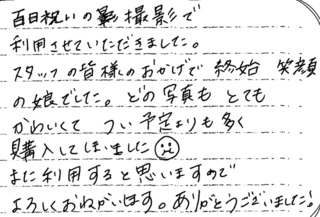 百日祝いの影撮影で
利用させていただきました。
スタッフの皆様のおかげで 終始 笑顔
の娘でした。どの写真も とても
かわいくて つい予定よりも多く
購入してしまいました
また利用すると思いますので
よろしくおねがいします。ありがとうございました!